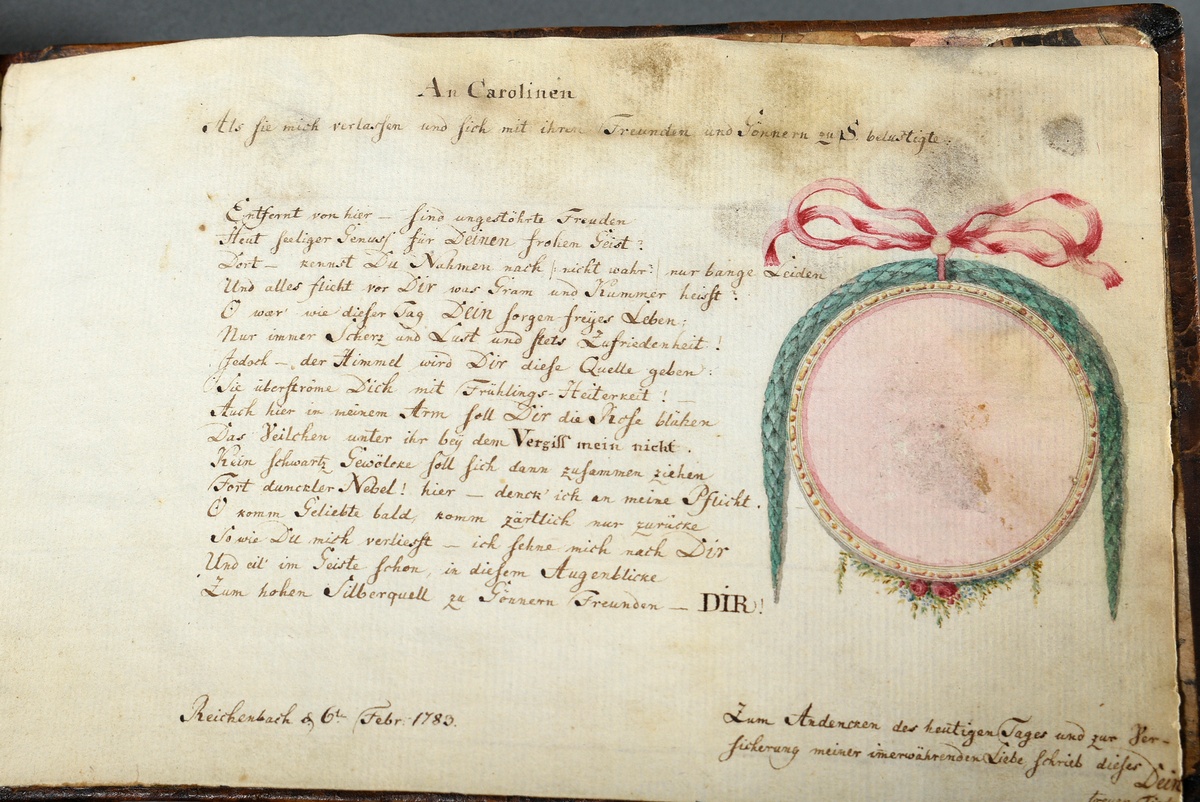 An Carolinen
Als sie mich verlassen und sich mit ihren Freunden und Gönnern zu S. belustigte.
Entfernt von hier — sind ungestöhrte Freuden
Heut seeliger Genuss für Deinen frohen Geist?
Dort — kennst Du Nahmen nach |: nicht wahr? :| nur bange Leiden
Und alles flieht vor Dir was Gram und Kummer heisst?
O wær wie dieser Tag Dein sorgen-freÿes Leben:
Nur immer Scherz und Lust und stets Zufriedenheit!
Jedoch — der Himmel wird Dir diese Quelle geben:
Sie überströme Dich mit Frühlings-Heiterkeit! —
Auch hier in meinem Arm soll Dir die Rose blühen
Das Veilchen unter ihr bey dem Vergiss mein nicht.
Kein schwartz Gewölcke soll sich dann zusammen ziehen
Fort dunckler Nebel! hier — denck' ich an meine Pflicht.
O komm Geliebte bald, komm zärtlich nur zurücke
So wie Du mich verliesst — ich sehne mich nach Dir
Und eil' im Geiste schon, in diesem Augenblicke
Zum hohen Silberquell zu Gönnern Freunden — DIR!
Reichenbach d. 6t. Febr. 1783.
Zum Andencken des heutigen Tages und zur Ver-
sicherung meiner imerwährenden Liebe, schrieb dieses Dein